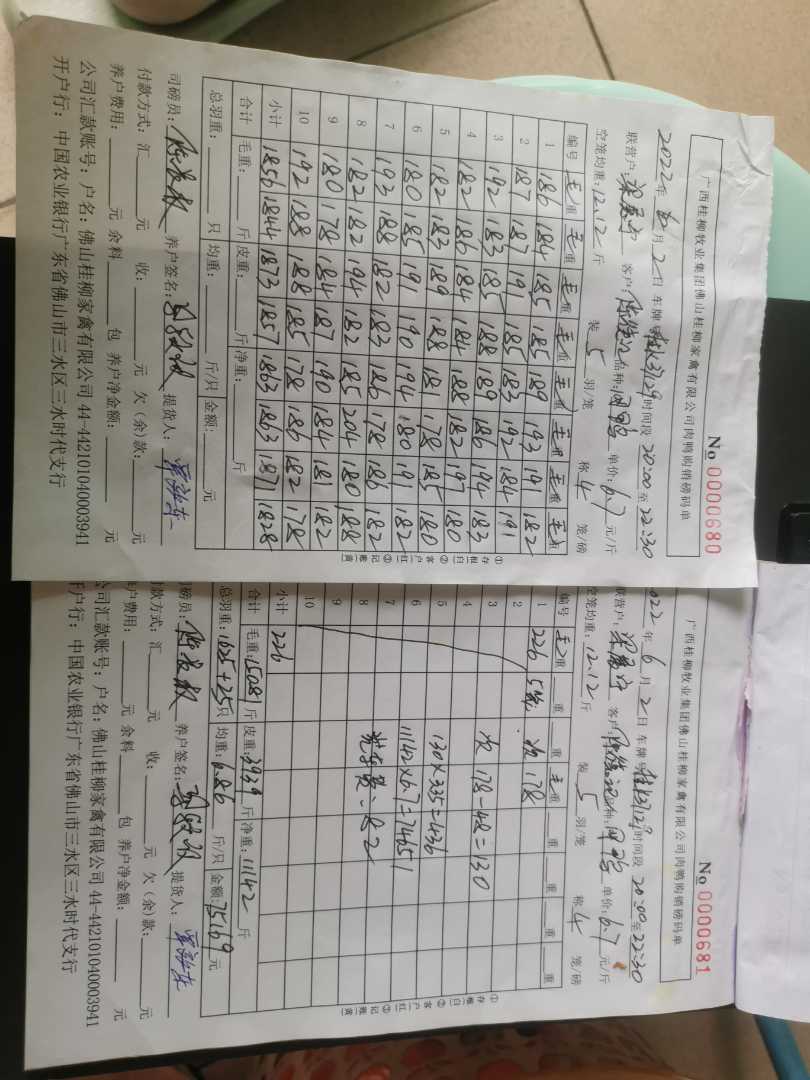 广西桂柳牧业集团佛山桂柳家禽有限公司肉鸭购销磅码单
No 0000680
2022 年 6 月 2 日 车牌号 时间段 20:00 至 22:30
联营户: 客户: 品种: 单价: 6.7 元/斤
空笼均重: 12.12 斤 装 5 羽/笼 称 4 笼/磅
编号 毛重 毛重 毛重 毛重 毛重 毛重 毛重 毛重
1 186 184 185 185 189 193 191 182
2 187 187 191 185 183 192 184 191
3 192 183 185 188 189 186 194 183
4 182 186 184 184 188 182 197 180
5 182 183 189 188 181 178 185 180
6 180 185 191 190 194 180 191 182
7 193 188 182 183 186 178 186 182
8 182 182 194 182 185 204 180 188
9 180 178 184 187 190 184 181 182
10 192 188 188 185 178 186 182 178
小计 1856 1844 1873 1857 1863 1863 1871 1828
合计 毛重: 斤 皮重: 斤 净重: 斤
总羽重: 只 均重: 斤/只 金额: 元
①存根 白 ②客户 红 ③记账 黄
司磅员: 养户签名: 提货人:
付款方式: 汇 元 收: 元 欠(余)款: 元
养户费用: 元 余料 包 养户净金额: 元
公司汇款账号: 户名: 佛山桂柳家禽有限公司 44-442101040003941
开户行: 中国农业银行广东省佛山市三水区三水时代支行
广西桂柳牧业集团佛山桂柳家禽有限公司肉鸭购销磅码单
No 0000681
2022 年 6 月 2 日 车牌号 时间段 20:00 至 22:30
联营户: 客户: 品种: 单价: 6.7 元/斤
空笼均重: 12.12 斤 装 5 羽/笼 称 4 笼/磅
编号 毛重 重 重 毛重 重 重 重 重
1 226 5笼 次 178
2
3 次 178-48=130
4
5 130×3.35=436
6 11142×6.7=74651
7
8 = 82
9
10
小计 226
合计 毛重: 15081 斤 皮重: 3939 斤 净重: 11142 斤
总羽重: 1625+25 只 均重: 6.86 斤/只 金额: 75169 元
①存根 白 ②客户 红 ③记账 黄
司磅员: 养户签名: 提货人:
付款方式: 汇 元 收: 元 欠(余)款: 元
户费用: 元 余料 包 养户净金额: 元
公司汇款账号: 户名: 佛山桂柳家禽有限公司 44-442101040003941
开户行: 中国农业银行广东省佛山市三水区三水时代支行